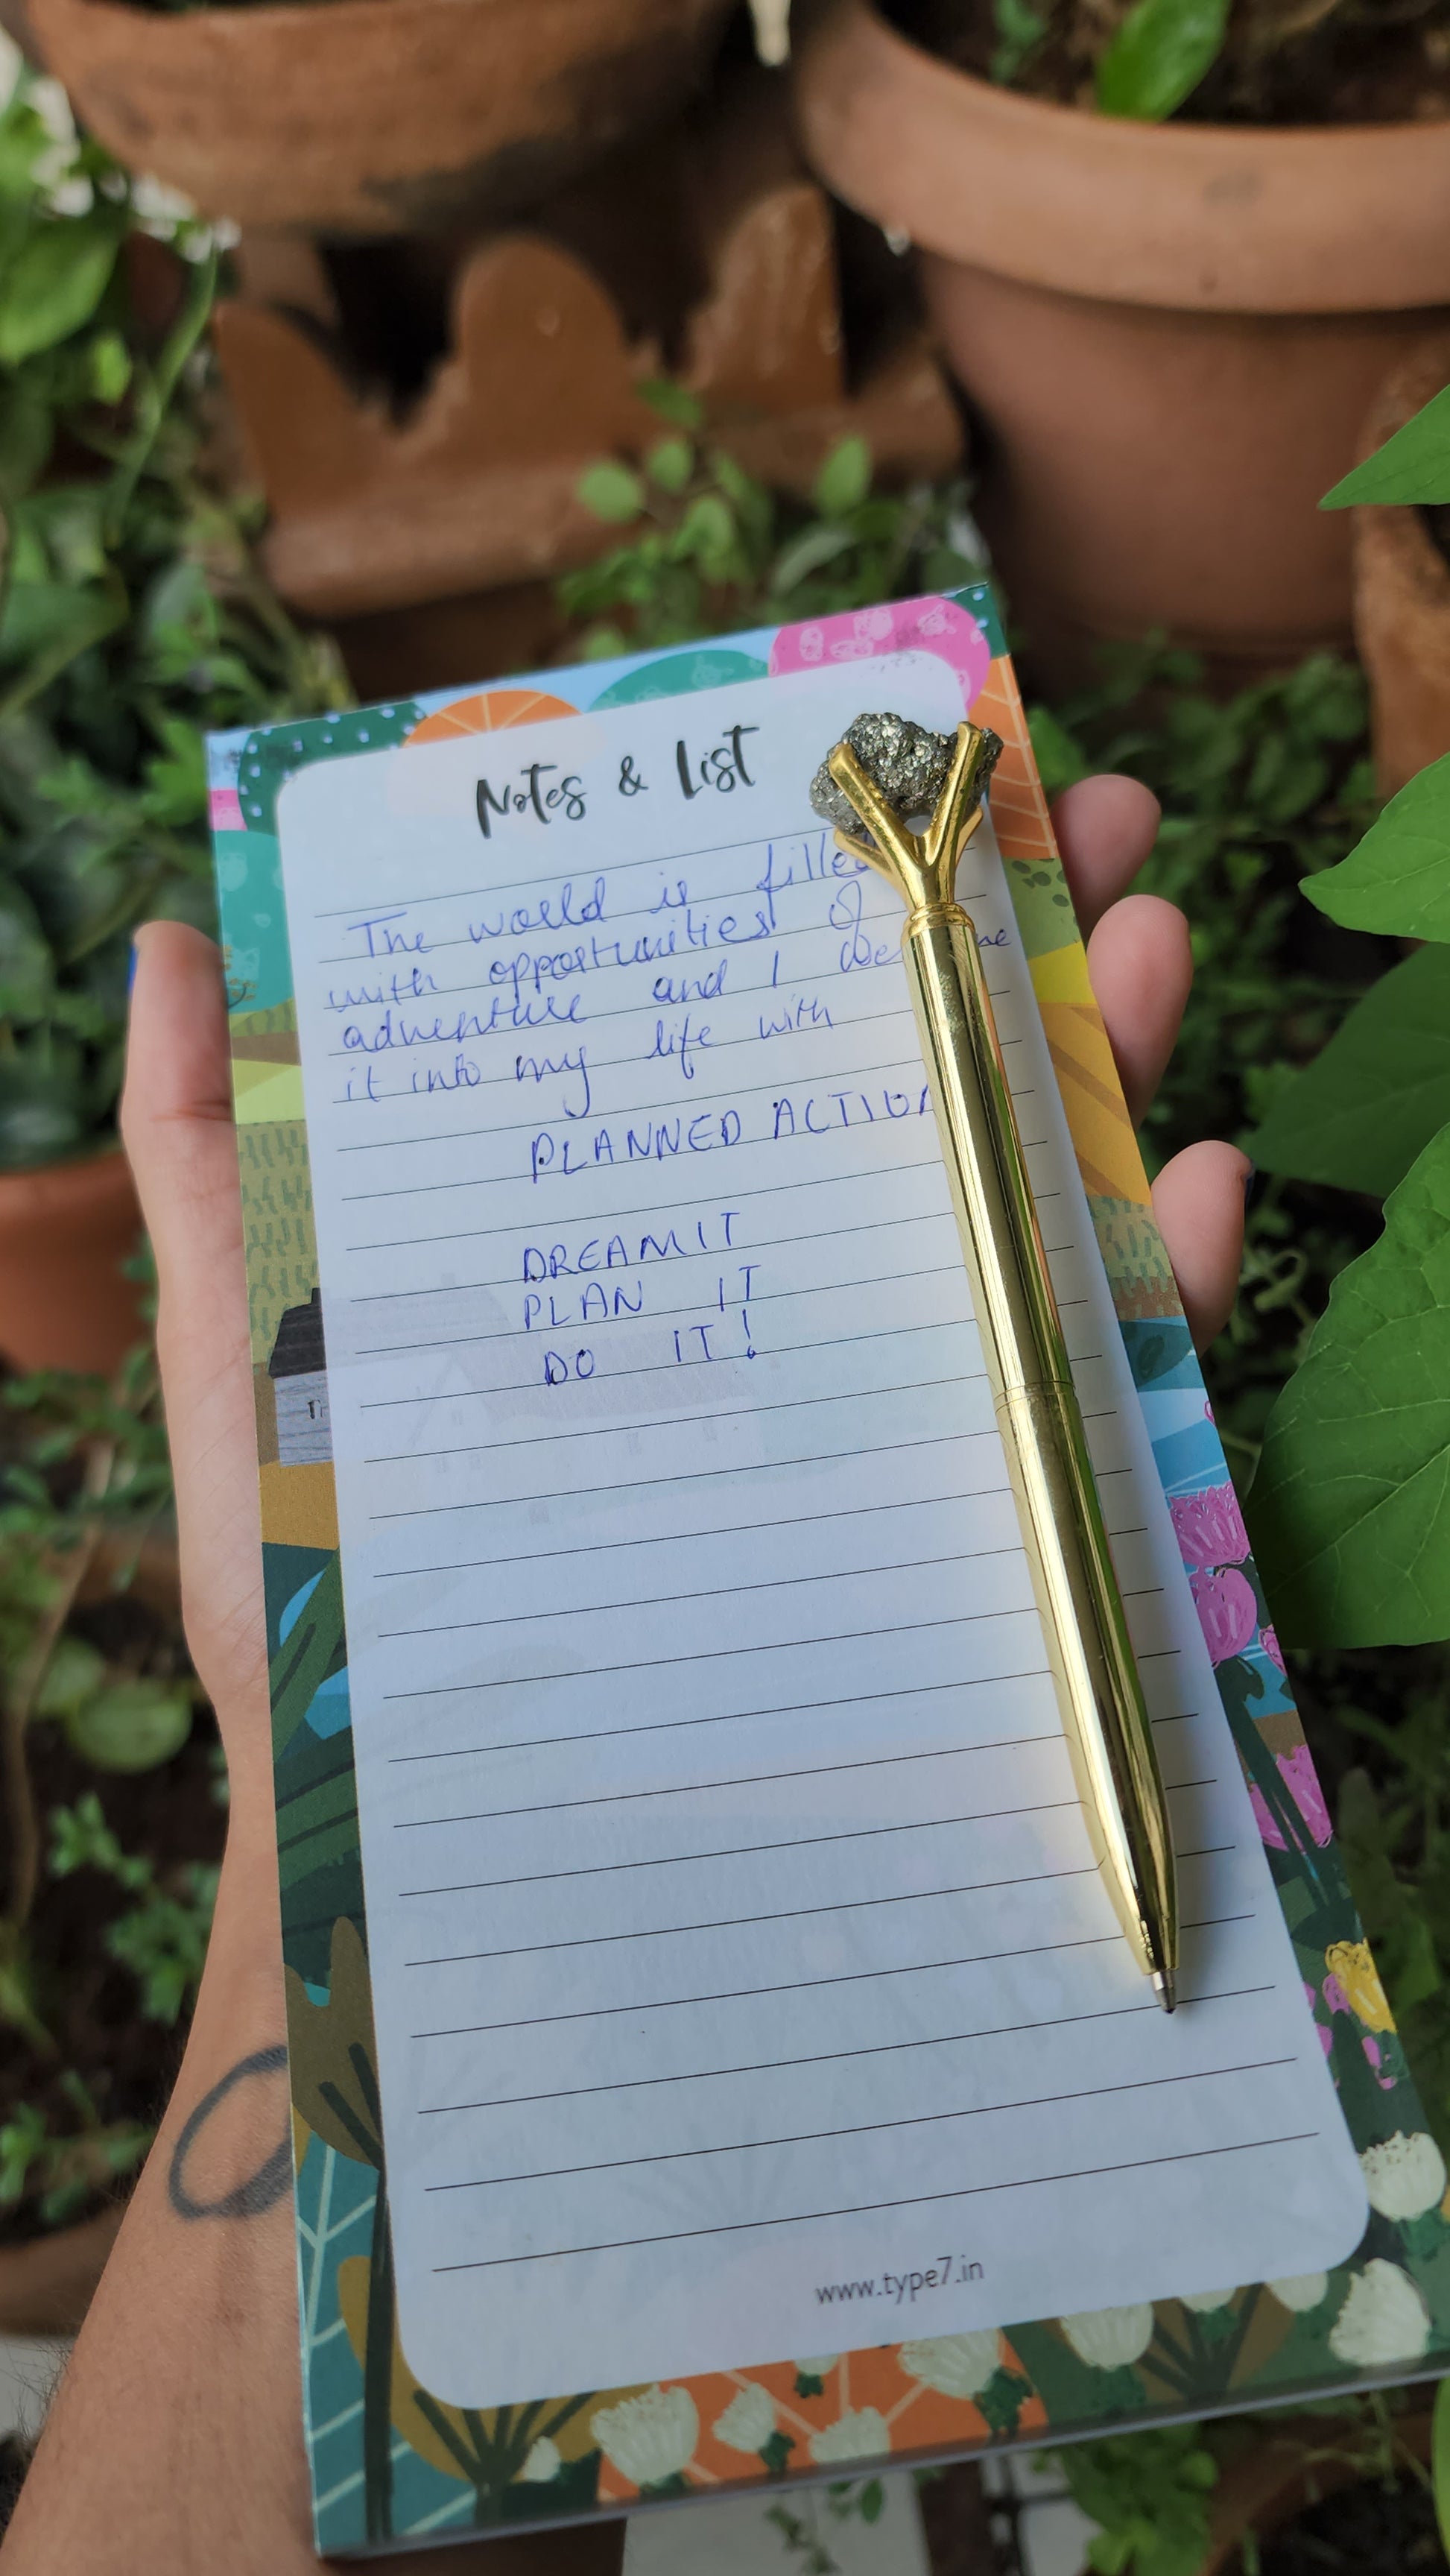 Notes & List
The world is filled
with opportunities of
adventure and I
it into my life with
PLANNED ACTION
DREAM IT
PLAN IT
DO IT!
www.type7.in